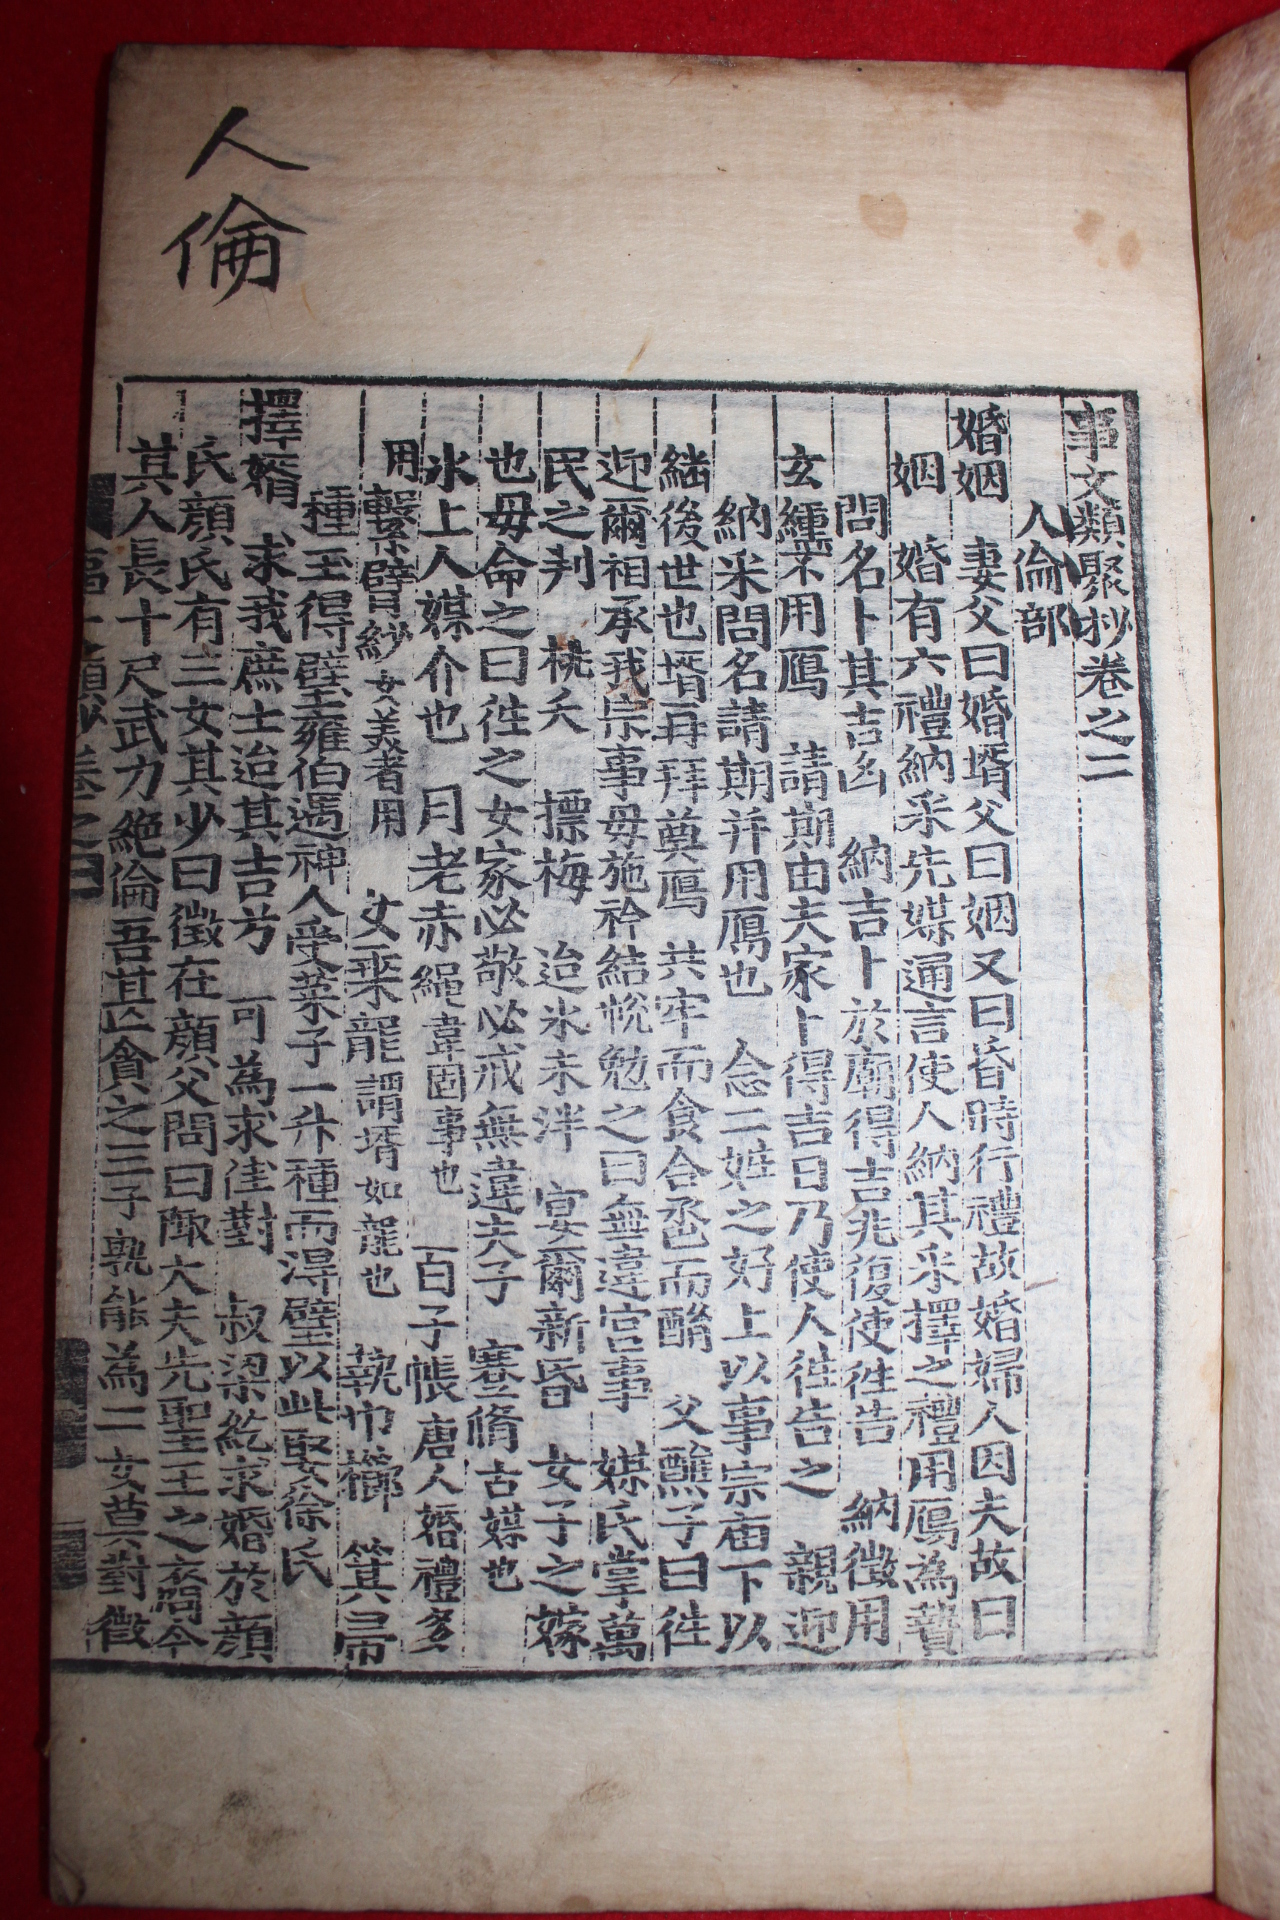 人倫
事文類聚抄卷之二
人倫部
婚姻 妻父曰婚壻父曰姻又曰昏時行禮故婚婦人因夫故曰
姻 婚有六禮納采先媒通言使人納其采擇之禮用鴈為贄
問名卜其吉凶 納吉卜於廟得吉兆復使徃告 納徵用
玄纁不用鴈 請期由夫家卜得吉日乃使人徃告之 親迎
納采問名請期并用鴈也 合二姓之好上以事宗庙下以
繼後世也壻再拜奠鴈 共牢而食合巹而酳 父醮子曰徃
迎爾相承我宗事毋施衿結帨勉之曰無違宮事 媒氏掌萬
民之判 桃夭 摽梅 迨氷未泮 宴爾新昏 女子之嫁
也毋命之曰徃之女家必敬必戒無違夫子 蹇脩古媒也
氷上人媒介也 月老赤繩韋固事也 百子帳唐人婚禮多
用 繫臂紗女美者用 女乘龍謂壻如龍也 執巾櫛 箕帚
種玉得璧雍伯遇神人受菜子一升種而得璧以此娶徐氏
擇壻 求我庶士迨其吉兮 可為求佳對 叔梁紇求婚於顔
氏顔氏有三女其少曰徵在顔父問曰陬大夫先聖王之裔今
其人長十尺武力絶倫吾甚貪之三子孰能為二女莫對徵